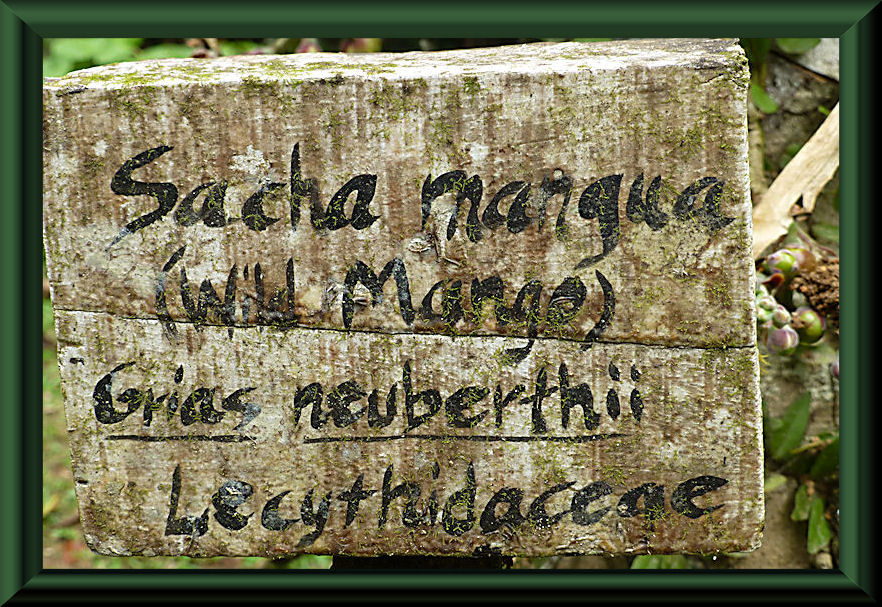 Sacha mangua
(Wild Mango)
Grias neuberthii
Lecythidaceae